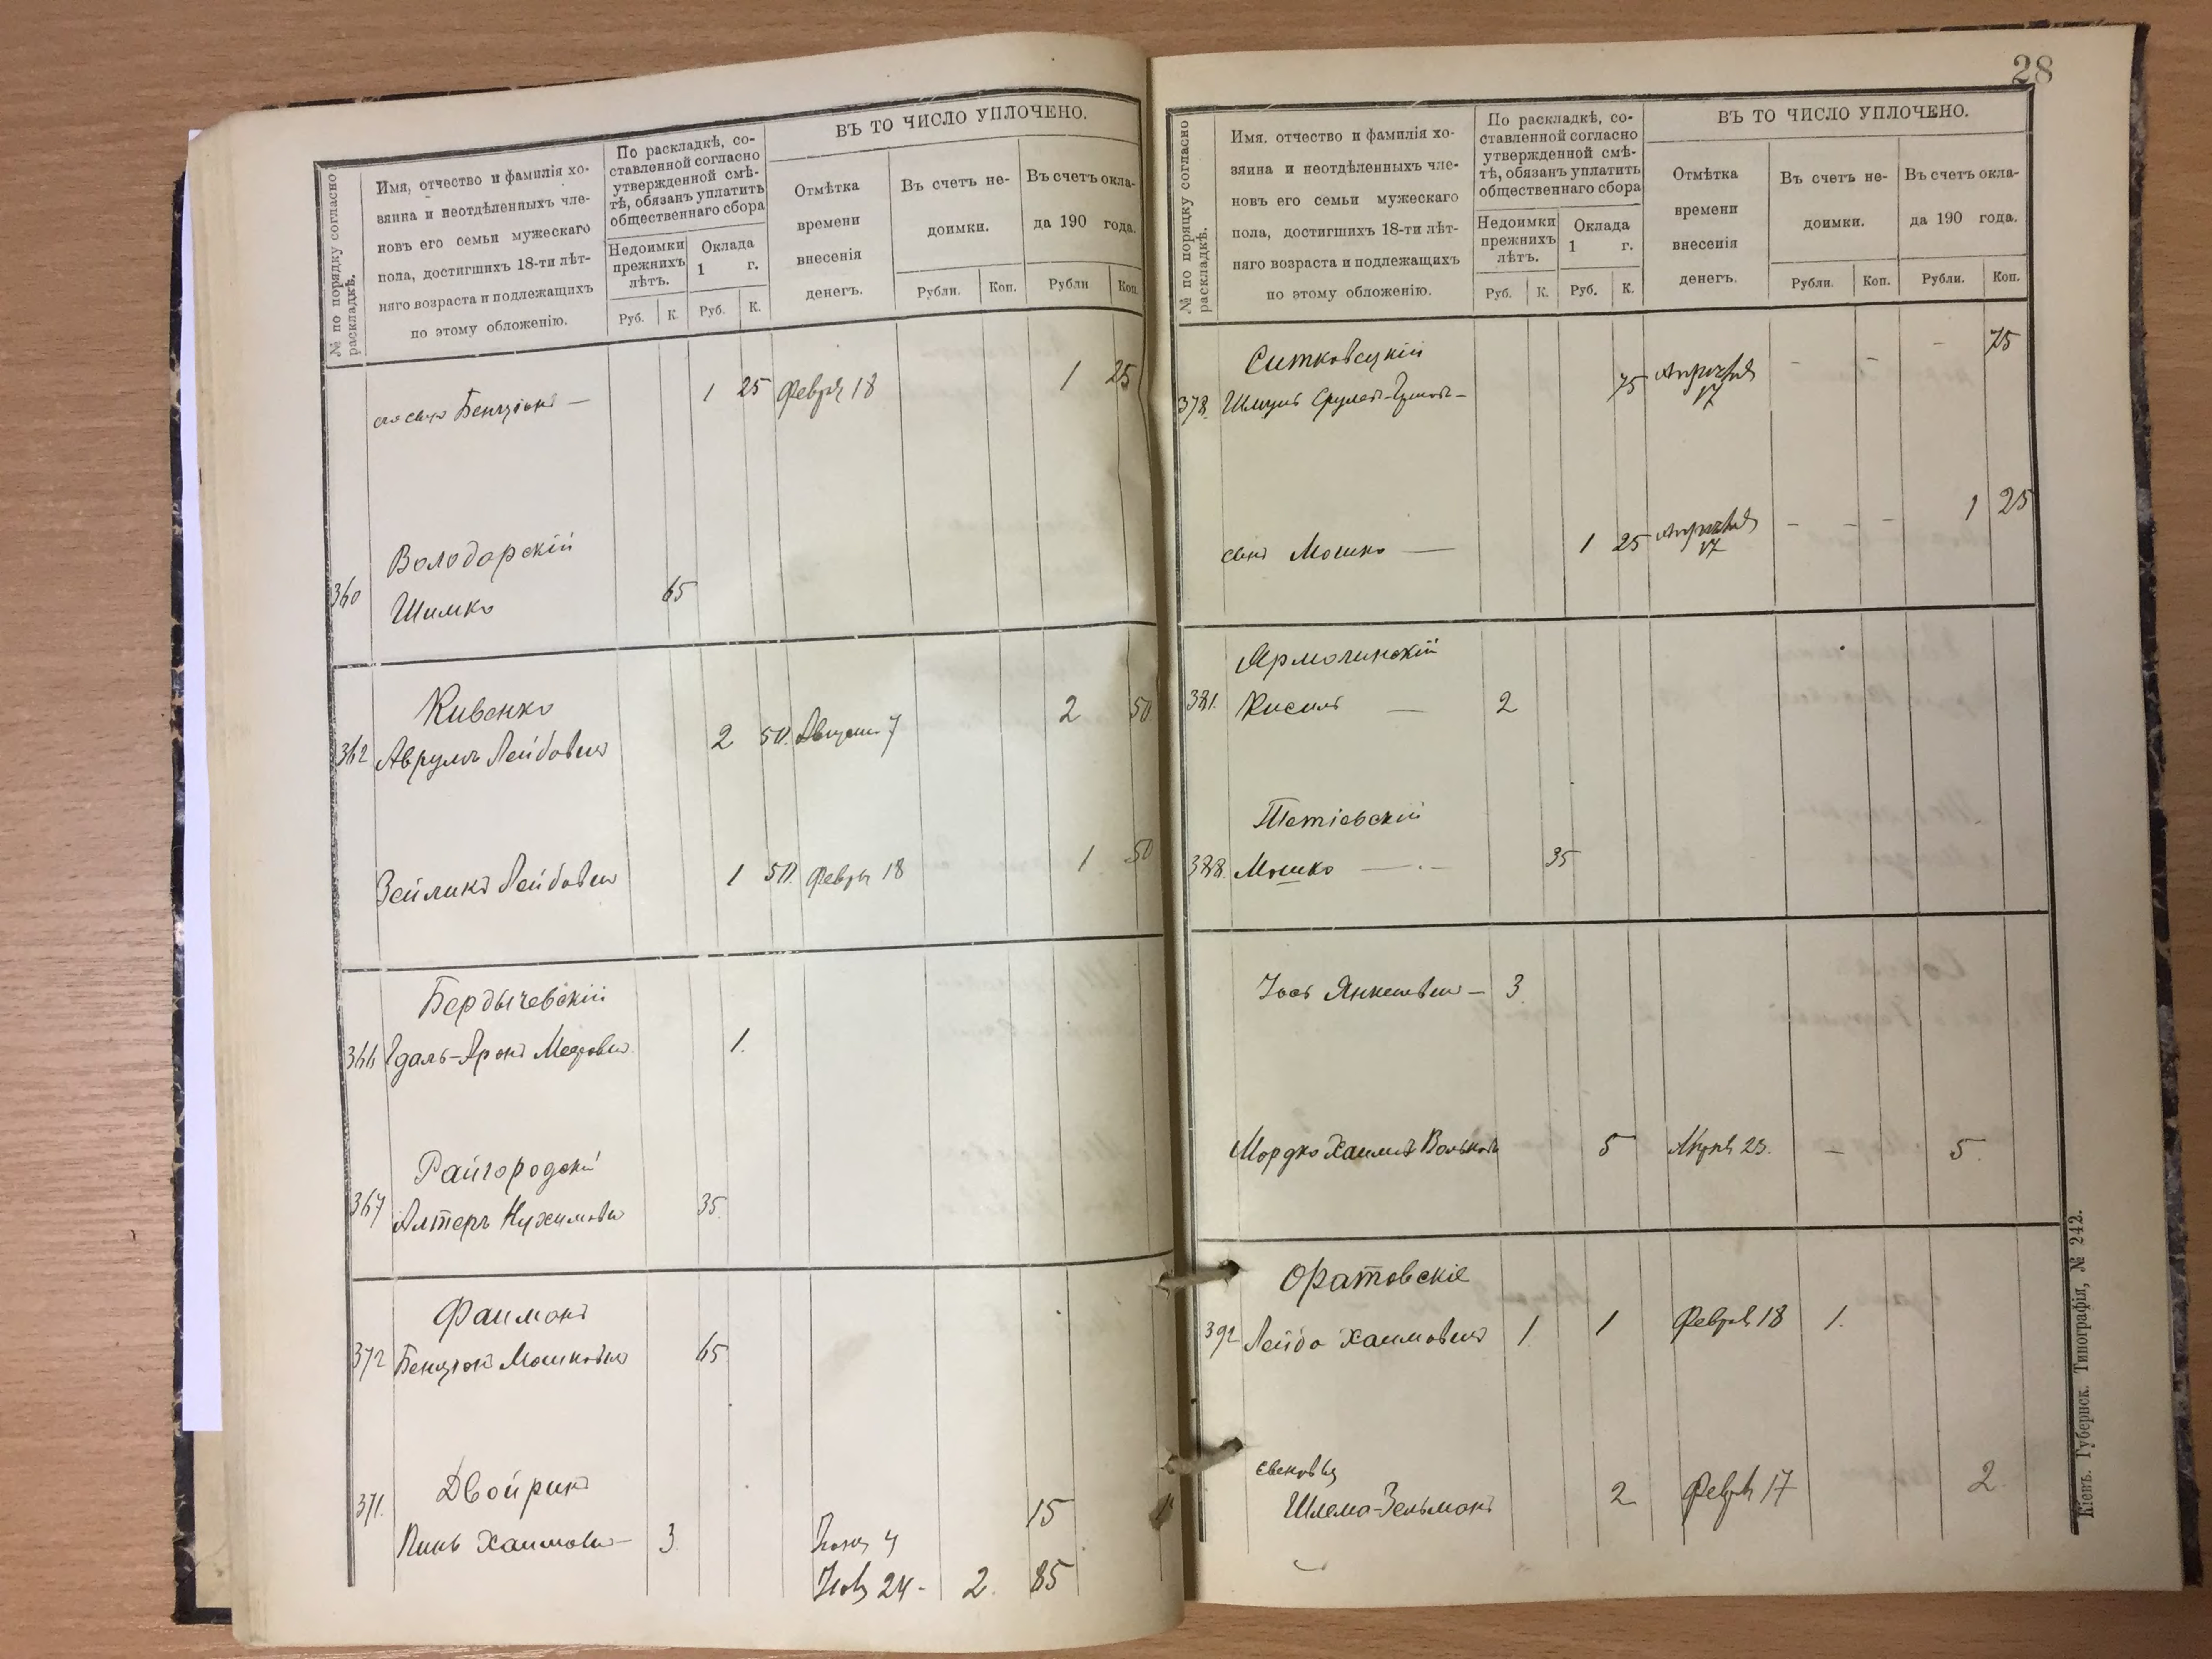 № по порядку согласно раскладкѣ.
Имя, отчество и фамилія хо-
зяина и неотдѣленныхъ чле-
новъ его семьи мужескаго
пола, достигшихъ 18-ти лѣт-
няго возраста и подлежащихъ
по этому обложенію.
По раскладкѣ, со-
ставленной согласно
утвержденной смѣ-
тѣ, обязанъ уплатить
общественнаго сбора
Недоимки
прежнихъ
лѣтъ.
Оклада
1 г.
Руб. К. Руб. К.
ВЪ ТО ЧИСЛО УПЛОЧЕНО.
Отмѣтка
времени
внесенія
денегъ.
Въ счетъ не-
доимки.
Въ счетъ окла-
да 190 года.
Рубли. Коп. Рубли Коп.
Бенціонъ — 1 25 Февр 18 1 25
Володарскій
360 Шимко 65
Кивенко
362 Аврумъ Лейбовъ 2 50. Август 7 2 50
Зейликъ Лейбов 1 50. Февр 18 1 50
Бердычевскій
366 Гдаль-Аронъ 1.
Райгородскі
367 Алтеръ Нухимов 35
Фаиманъ
372 Бенціон Мошковъ 65
Двойринъ
371. Пинь Хаимов — 3 4 15
24 - 2. 85
28
№ по порядку согласно раскладкѣ.
Имя, отчество и фамилія хо-
зяина и неотдѣленныхъ чле-
новъ его семьи мужескаго
пола, достигшихъ 18-ти лѣт-
няго возраста и подлежащихъ
по этому обложенію.
По раскладкѣ, со-
ставленной согласно
утвержденной смѣ-
тѣ, обязанъ уплатить
общественнаго сбора
Недоимки
прежнихъ
лѣтъ.
Оклада
1 г.
Руб. К. Руб. К.
ВЪ ТО ЧИСЛО УПЛОЧЕНО.
Отмѣтка
времени
внесенія
денегъ.
Въ счетъ не-
доимки.
Въ счетъ окла-
да 190 года.
Рубли. Коп. Рубли. Коп.
Ситковецкій
378. Шмуль 75 Апрѣля 17 - - - 75
сынъ Мошко — 1 25 Апрѣля 17 - - - 1 25
Ярмолинскій
381. Кисиль — 2
Тетіевскій
388. Мошко — 35
Іось Янкелев — 3
Мордко Хаимъ Вольков 5 Апрѣ 23. - 5.
Оратовскіе
392 Лейба Хаимовъ 1 1 Февр 18 1.
сыновья
Шлема-Зельманъ 2 Февр 17 2.
Кіевъ. Губернск. Типографія, № 242.